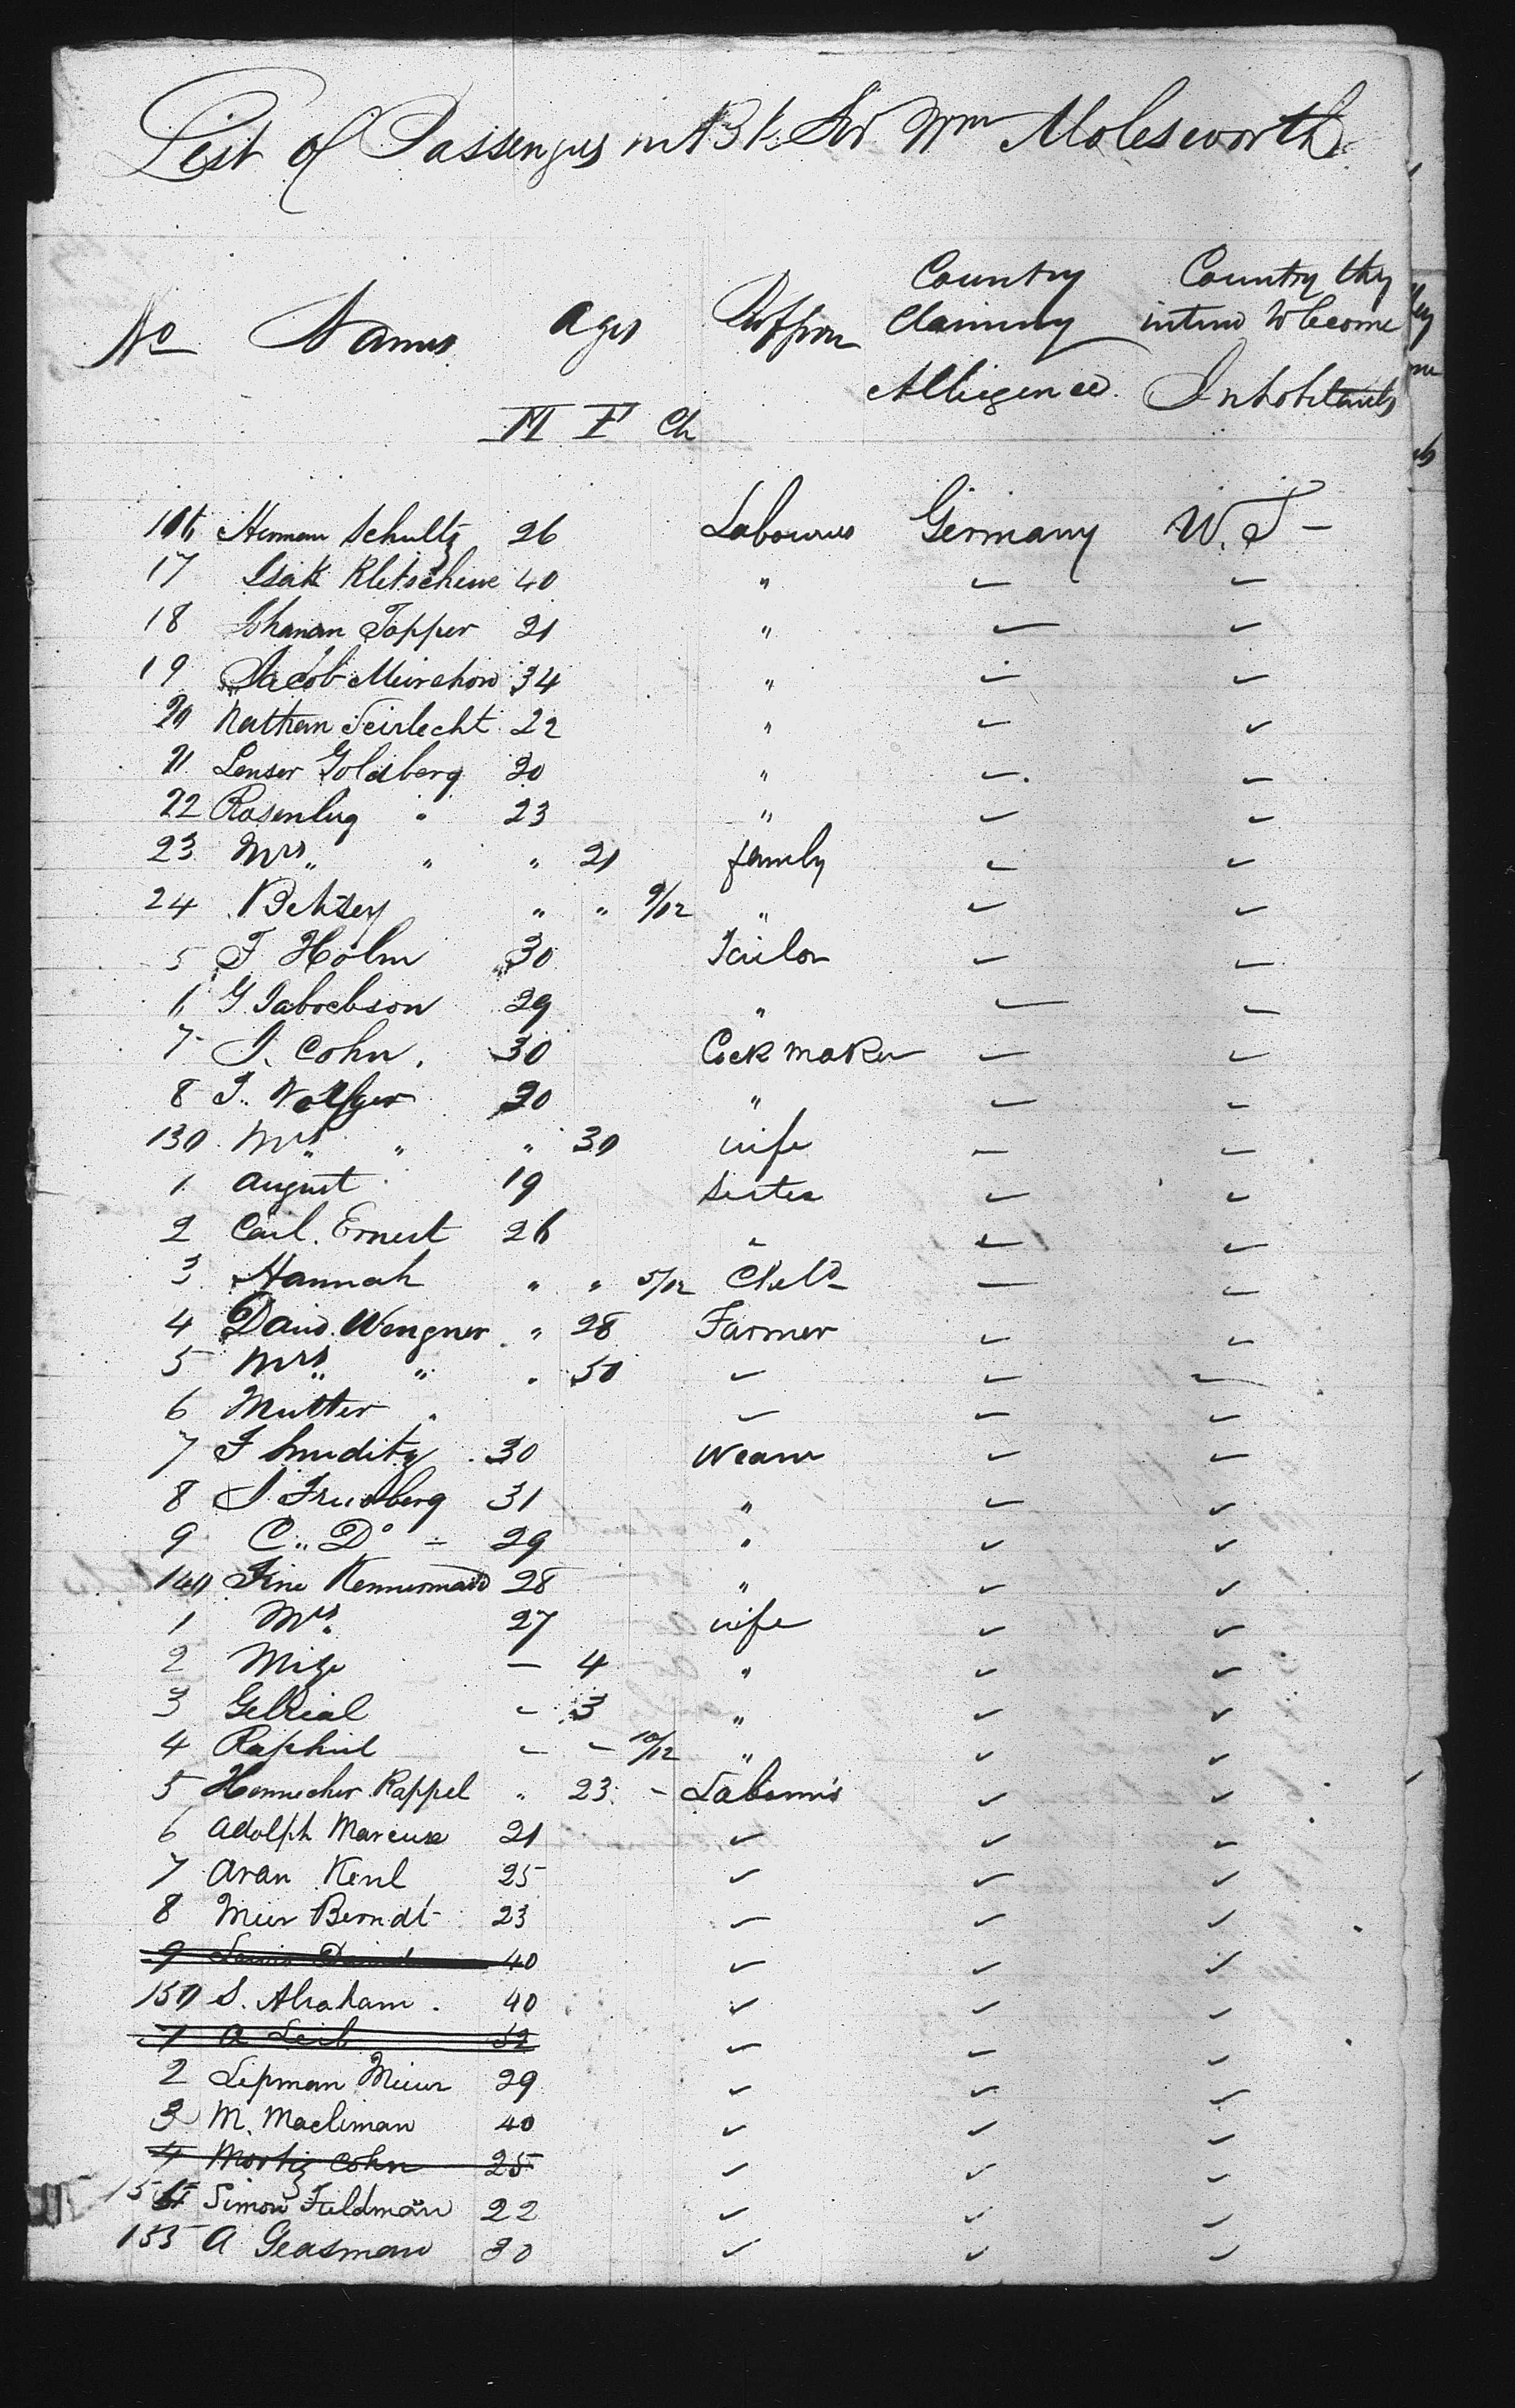 List of Passengers in Bk Sir Wm Molesworth
No Names Ages Proffson Country Claiming Alliegence Country they intend to become Inhabitants
M F Ch
116 Herman Schultz 26 Labourers Germany W. S -
17 Isak Kletscheue 40 "
18 Johanan Topper 21 "
19 Jacob Meirchow 34 "
20 Nathan Seirlecht 22 "
21 Lenser Goldberg 30 "
22 Rosenlug " 23 "
23 Mrs " " 21 family
24 Betsey " " 9/12 "
5 F Holm 30 Tailor
6 G Jabocbson 29 "
7 J. Cohn. 30 Cock maker
8 J. 20 "
130 Mrs " " 30 wife
1 August 19 sister
2 Carl. Ernest 26
3 Hannah " " 5/12 Child
4 David Wengner " 28 Farmer
5 Mrs " " 50
6 Mutter "
7 F 30 Weaver
8 J. Friedberg 31 "
9 C. Do - 29 "
140 Fine 28 "
1 Mrs 27 wife
2 Mize - 4 "
3 Gelrial - 3 "
4 Raphiel - - 10/12 "
5 Hennecher Rappel " 23 - Labourers
6 Adolph Marcuse 21
7 Aran Kenl 25
8 Meir Berndt 23
9 40
150 S. Abraham. 40
1 A Leib 52
2 Lipman Meier 29
3 M. Macliman 40
4 Moritz Cohn 25
154 Simon Fieldman 22
155 A Geasman 30